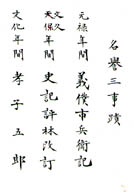 名譽三事蹟
元祿年間 義僕市兵衛記
天保文久年間 史記評林改訂
文化年間 孝子五郎